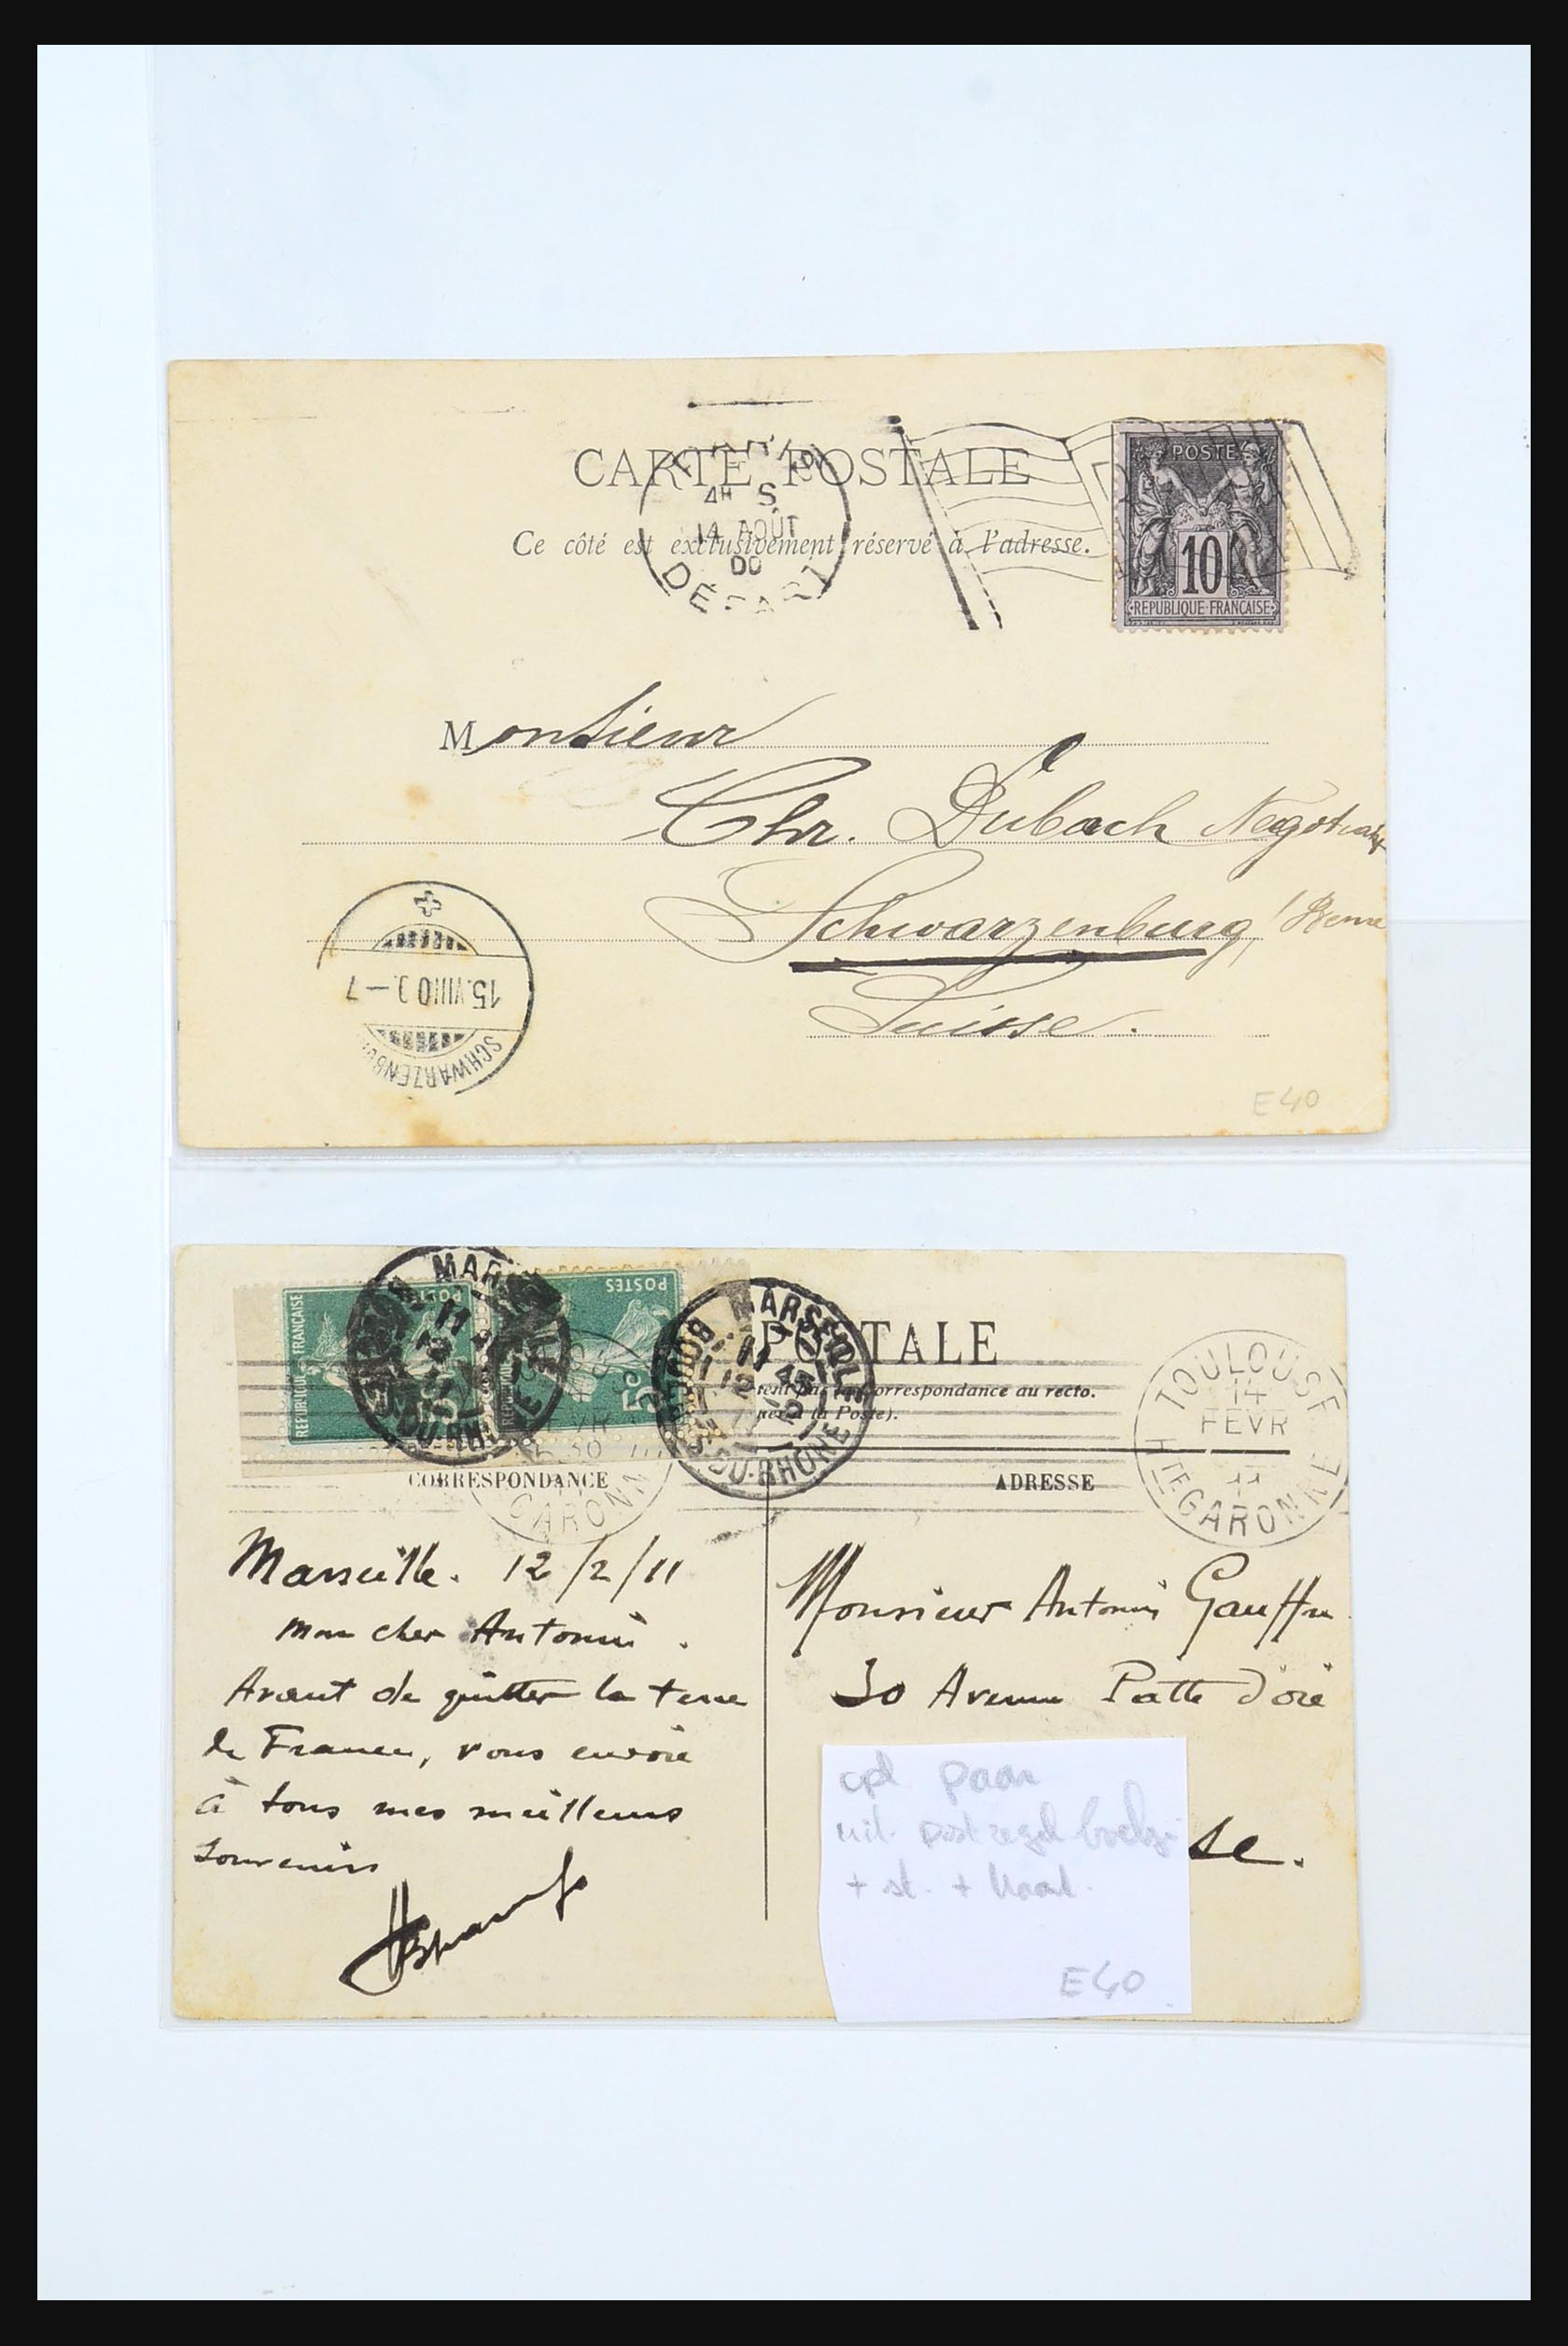 CARTE POSTALE
Ce côté est exclusivement réservé à l'adresse.
4H S
14 AOÛT
00
DÉPART
POSTES
10
REPUBLIQUE FRANÇAISE
Monsieur
Chr. Dubach Négotiant
Schwarzenburg / Berne
Suisse.
15.VIII00.–7
SCHWARZENBU
E40
REPUBLIQUE FRANÇAISE
POSTES
POSTES
5c
MARSEILLE
BOUCHES-DU-RHONE
POSTALE
correspondance au recto.
à la Poste).
TOULOUSE
14
FEVR
11
HTE GARONNE
GARONNE
CORRESPONDANCE
ADRESSE
Marseille. 12/2/11
Mon cher Antonin.
Avant de quitter la terre
de France, vous envoie
à tous mes meilleurs
souvenirs
Monsieur Antonin Gauffre
30 Avenue Patte d'oie
se.
cpl paar
uit postzegelboekje
+ st. + kant.
E40